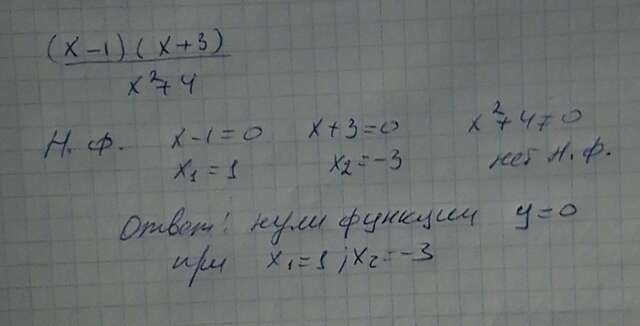 (x-1)(x+3)
x²+4
Н. ф. x-1=0 x+3=0 x²+4≠0
x₁=1 x₂=-3 нет н. ф.
Ответ: нули функции y=0
при x₁=1; x₂=-3